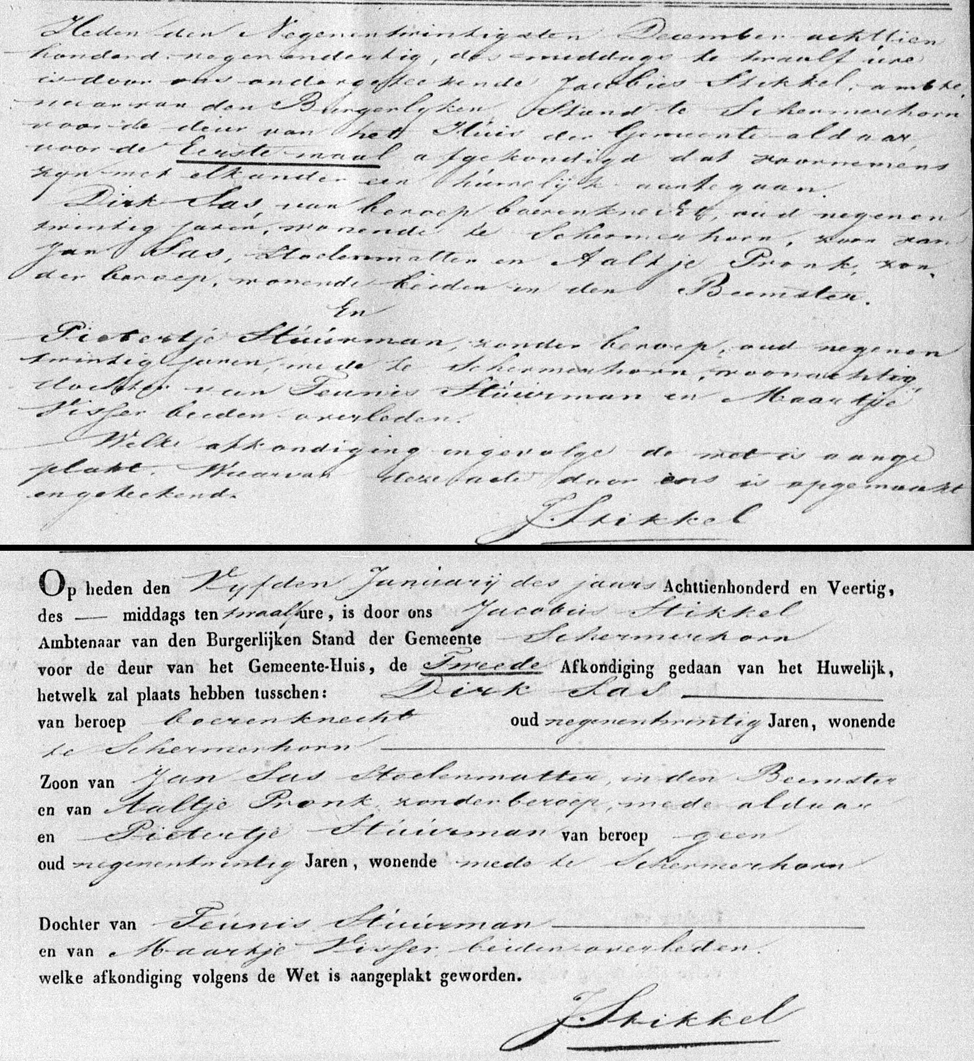 Heden den Negenentwintigsten December achttien
honderd negenendertig, des middags te twaalf ure
is door ons ondergeteekende Jacobus Stikkel, ambte,
naar van den Burgerlyken Stand te Schermerhorn
voor de deur van het Huis der Gemeente aldaar,
voor de Eerste maal afgekondigd dat voornemens
zyn met elkander een huwelijk aantegaan
Dirk Sas, van beroep boerenknecht, oud negenen
twintig jaren, wonende te Schermerhorn, zoon van
Jan Sas, Stoelenmatter en Aaltje Pronk, zon,
der beroep, wonende beiden in den Beemster.
En
Pietertje Stuurman, zonder beroep, oud negenen
twintig jaren, mede te Schermerhorn, woonachtig,
dochter van Teunis Stuurman en Maartje
Visser beiden overleden.
Welke afkondiging ingevolge de wet is aange
plakt. Waarvan deze acte door ons is opgemaakt
en geteekend.
J. Stikkel
Op heden den Vyfden January des jaars Achttienhonderd en Veertig,
des — middags ten twaalf ure, is door ons Jacobus Stikkel
Ambtenaar van den Burgerlijken Stand der Gemeente Schermerhorn
voor de deur van het Gemeente-Huis, de Tweede Afkondiging gedaan van het Huwelijk,
hetwelk zal plaats hebben tusschen: Dirk Sas
van beroep boerenknecht oud negenentwintig Jaren, wonende
te Schermerhorn
Zoon van Jan Sas Stoelenmatter, in den Beemster
en van Aaltje Pronk, zonder beroep, mede aldaar
en Pietertje Stuurman van beroep geen
oud negenentwintig Jaren, wonende mede te Schermerhorn
Dochter van Teunis Stuurman
en van Maartje Visser, beiden overleden.
welke afkondiging volgens de Wet is aangeplakt geworden.
J. Stikkel